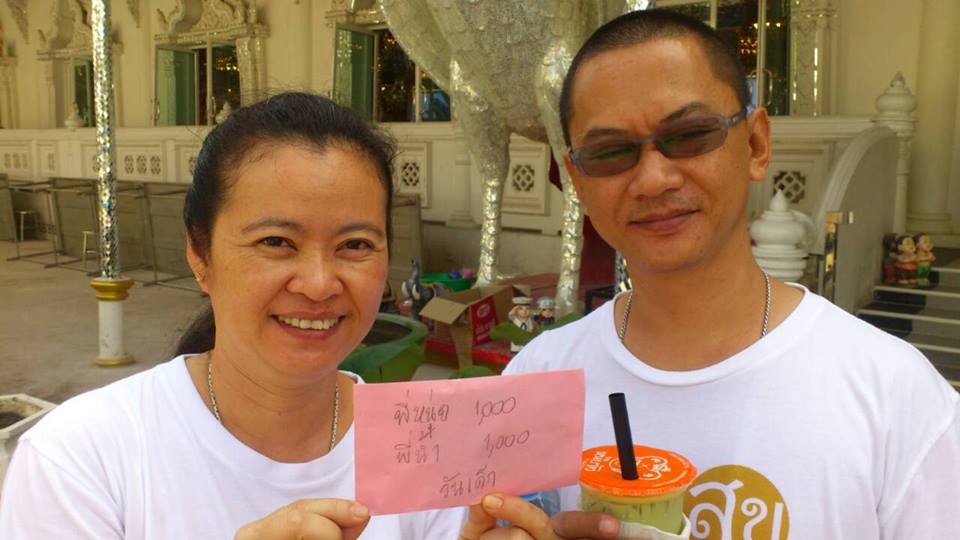 พี่หน่อ 1,000
พี่น้ำ 1,000
วันเด็ก
สุข